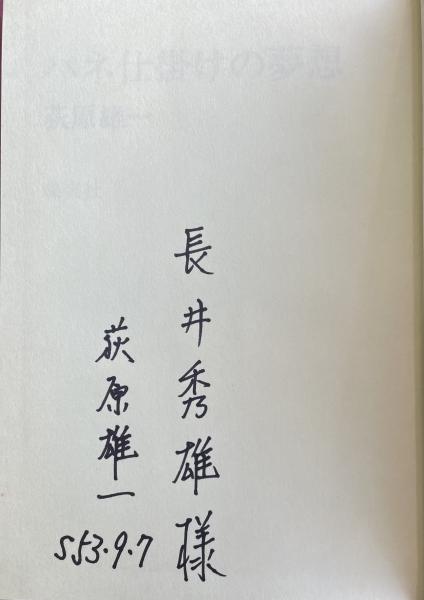 バネ仕掛けの夢想
荻原雄一
長井秀雄様
荻原雄一
S53.9.7